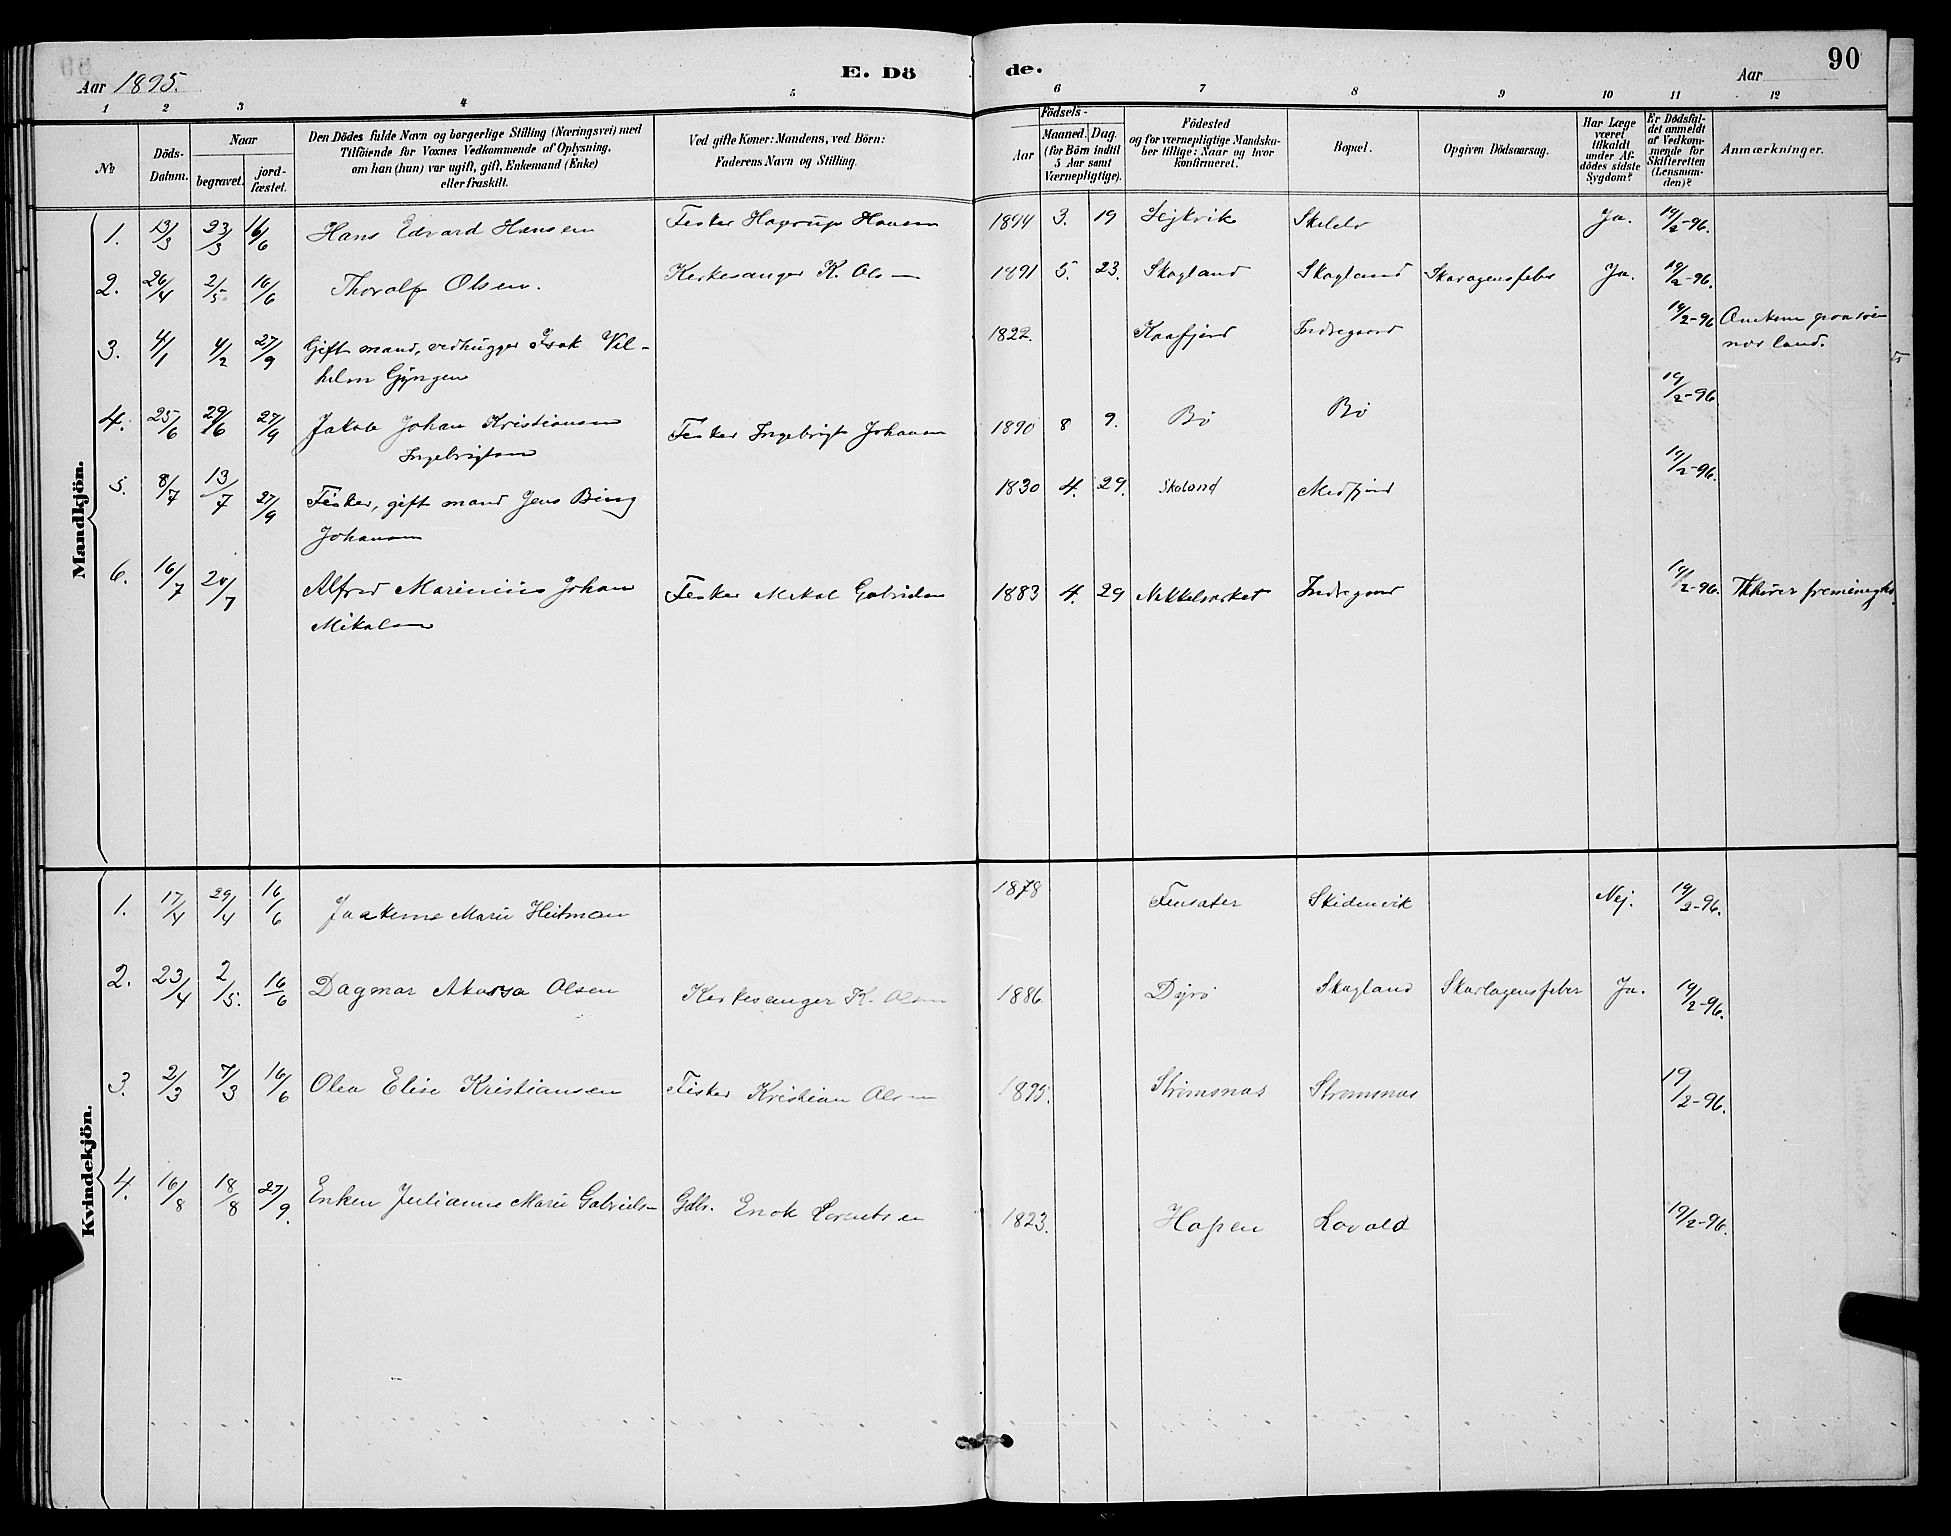 Aar 1895.
E. Dö
de.
Aar
90
1 2 3 4 5 6 7 8 9 10 11 12
№
Döds-Datum.
Naar
begravet.
jord-fæstet.
Den Dödes fulde Navn og borgerlige Stilling (Næringsvei) med
Tilföiende for Voxnes Vedkommende af Oplysning,
om han (hun) var ugift, gift, Enkemand (Enke)
eller fraskilt.
Ved gifte Koner: Mandens, ved Börn:
Faderens Navn og Stilling.
Födsels-
Aar
Maaned. Dag.
(for Börn indtil
5 Aar samt
Værnepligtige).
Födested
og for værnepligtige Mandska-
ber tillige: Naar og hvor
konfirmeret.
Bopæl.
Opgiven Dödsaarsag.
Har Læge
været
tilkaldt
under Af-
dödes sidste
Sygdom?
Er Dödsfal-
det anmeldt
af Vedkom-
mende for
Skifteretten
(Lensman-
den)?
Anmærkninger.
Mandkjön.
1. 13/3 23/3 16/6 Hans Edvard Hansen Fisker Hagerup Hansen 1894 3. 19 Lejkvik Ja. 19/2-96.
2. 26/4 2/5 16/6 Thoralf Olsen. Kirkesanger K. Olsen 1891 5. 23. Skogland Skogland Ja. 19/2-96.
3. 4/1 4/2 27/9 Gift mand, vedhugger Isak Vil-
helm Gjyngen 1822. Kaafjord Indregaard 19/2-96
nor land.
4. 25/6 29/6 27/9 Jakob Johan Kristiansen
Ingebrigtsen Fisker Ingebrigt Johansen 1890 8 9. Bö Bö 19/2-96
5. 8/7 13/7 27/9 Fisker, gift mand Jens Bing
Johansen 1830 4. 29. Skaland Medfjord 19/2-96.
6. 16/7 20/7 Alfred Marinius Johan
Mikalsen Fisker Mikal Gabrielsen 1883 4. 29 Indregaard 19/2-96.
Kvindekjön.
1. 17/4 29/4 16/6 Marie Heitman 1878 Finsæter Skidenvik Nej. 19/2-96.
2. 23/4 2/5. 16/6 Dagmar Olsen Kirkesanger K. Olsen 1886 Dyrö Skogland Skarlagensfeber Ja. 19/2-96.
3. 2/3 7/3 16/6 Olea Elise Kristiansen Fisker Kristian Olsen 1895. Strömsnæs Strömsnæs 19/2-96.
4. 16/8 18/8 27/9. Enken Julianne Marie Gabrielsen Gdbr. Enok Lorentsen 1823. Hopen Lovold 19/2-96.